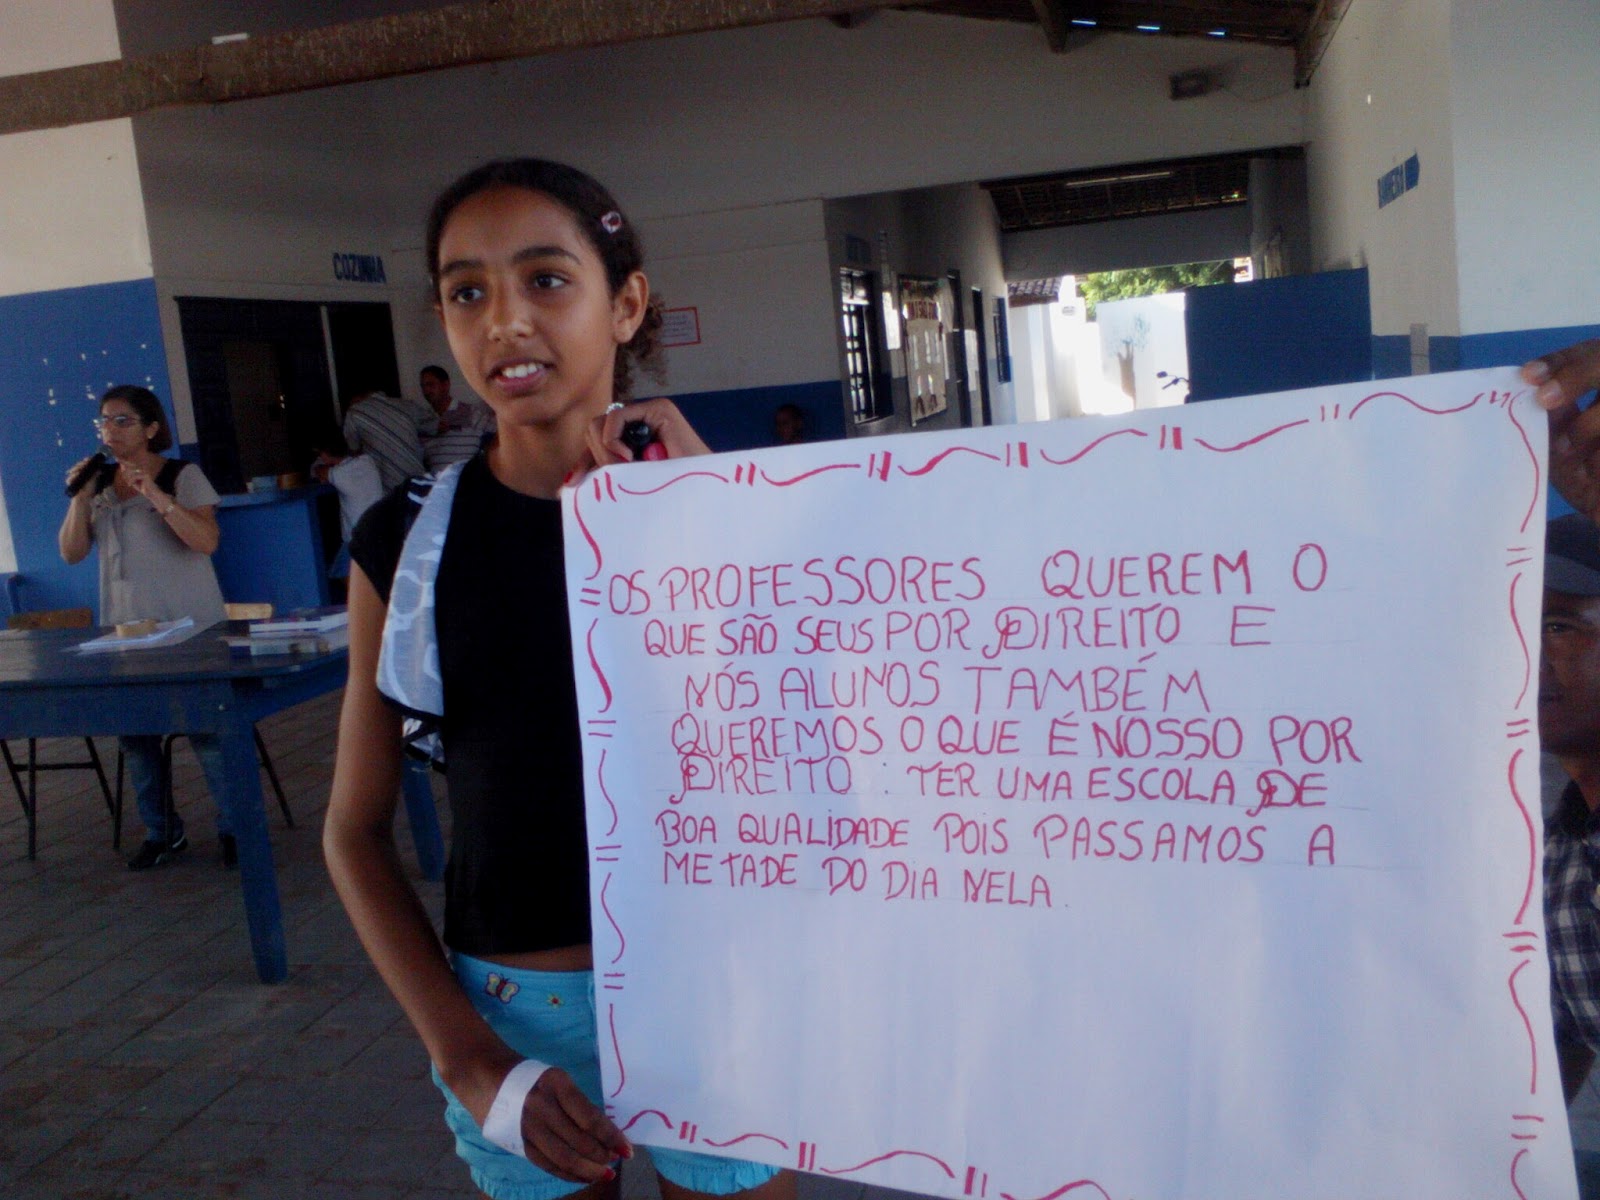 COZINHA
OS PROFESSORES QUEREM O
QUE SÃO SEUS POR DIREITO E
NÓS ALUNOS TAMBÉM
QUEREMOS O QUE É NOSSO POR
DIREITO : TER UMA ESCOLA DE
BOA QUALIDADE POIS PASSAMOS A
METADE DO DIA NELA.